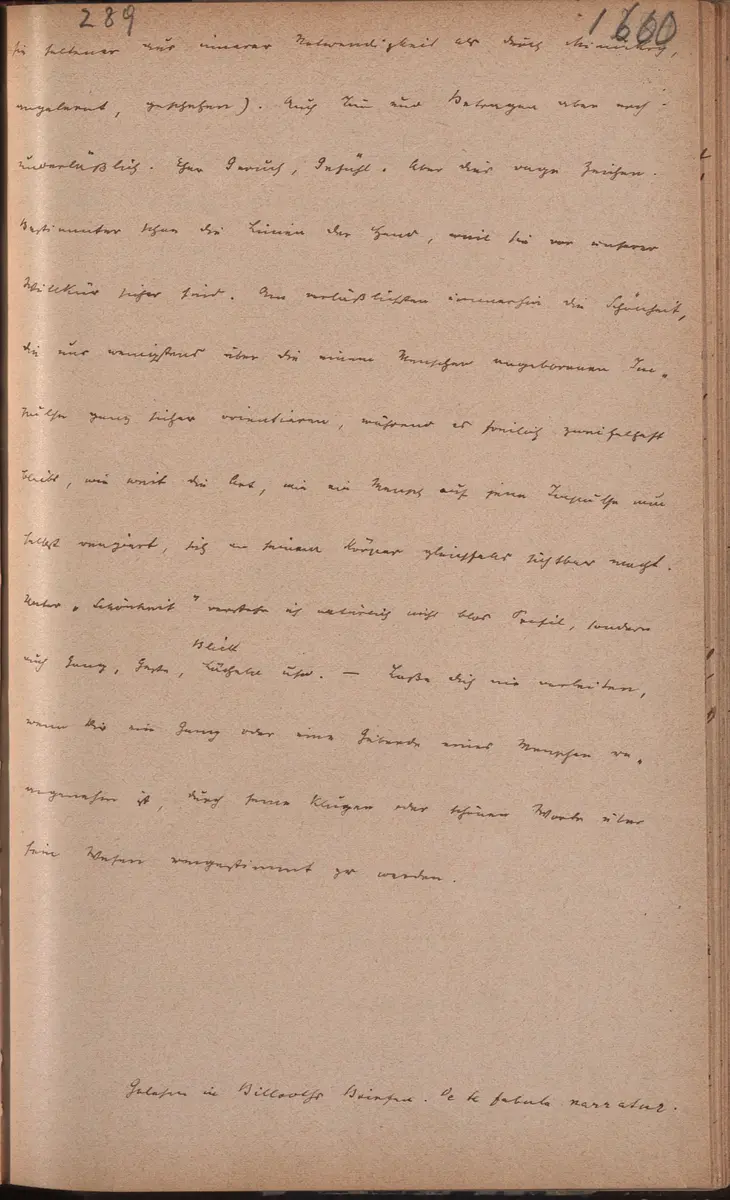 289 1660
sie seltener aus innerer Notwendigkeit als durch Mimikry,
angelernt, geschehen). Auch Tun und Betragen aber noch
unverläßlich. Eher Geruch, Gefühl. Aber dies vage Zeichen.
Bestimmter schon die Linien der Hand, weil sie vor unserer
Willkür sicher sind. Am verläßlichsten immerhin die Schönheit,
die uns wenigstens über die einem Menschen angeborenen Im-
pulse ganz sicher orientieren, während es freilich zweifelhaft
bleibt, wie weit die Art, wie ein Mensch auf jene Impulse nun
selbst reagiert, sich an seinem Körper gleichfalls sichtbar macht.
Unter „Schönheit" verstehe ich natürlich nicht blos Profil, sondern
Blick
auch Gang, Geste, Lächeln usw. — Laße dich nie verleiten,
wenn dir ein Gang oder eine Geberde eines Menschen un-
angenehm ist, durch seine klugen oder schönen Worte über
sein Wesen umgestimmt zu werden.
Gelesen in Billroths Briefen. De te fabula narratur.